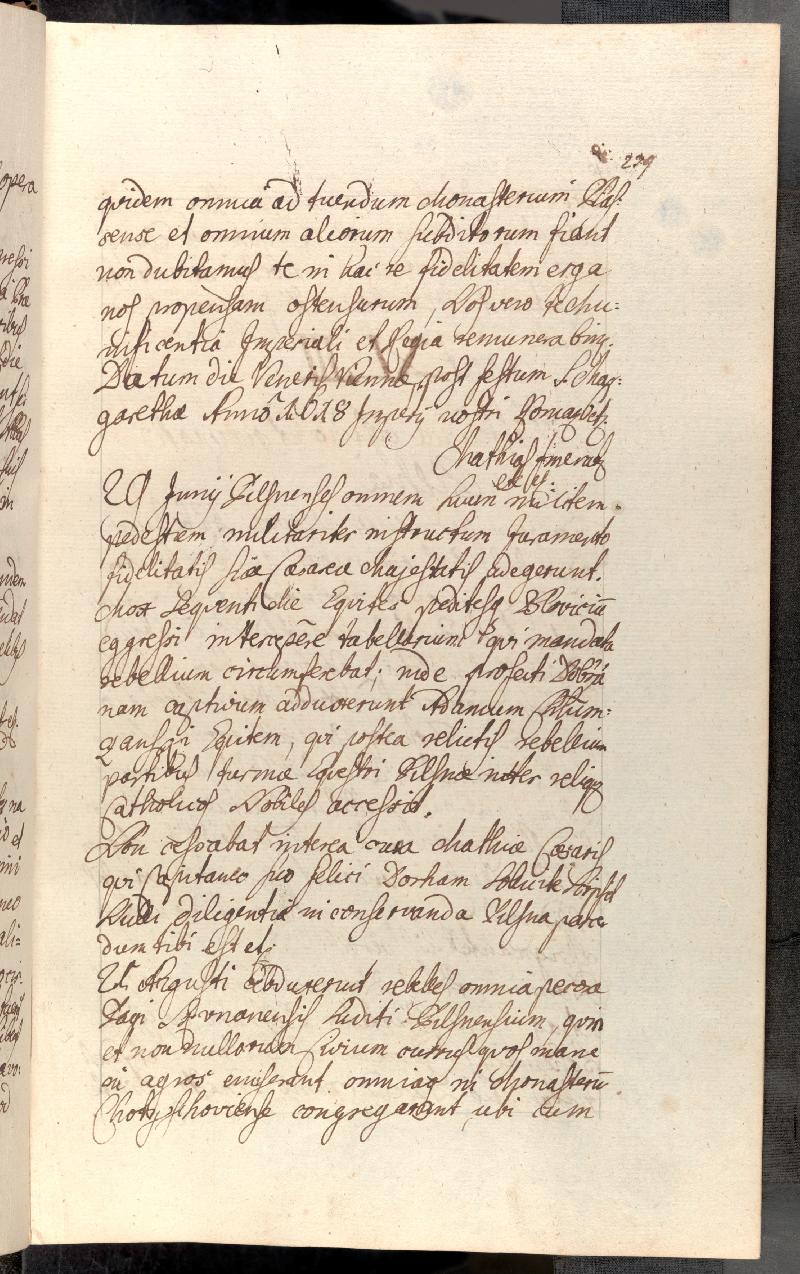 239
quidem omnia ad tuendum Monasterium Plas:
sense et omnium aliorum subditorum fiant
non dubitamus te in hac re fidelitatem erga
nos propensam ostensurum, Nos vero te Mu:
nificentia Imperiali et Regia remunerabimg.
Datum die Veneris Viennæ, post festum S. Mar:
garethæ Anno 1618 Imperij nostri
Mathias Imerat
etc etc:
Junij Pilsnenses omnem suum militem
pedestrem militariter instructum Juramento
fidelitatis suæ Cæsareæ Majestatis adegerunt.
Mox sequenti die Equites peditesq Bloviciū
eggressi intercepēre tabellarium qui mandata
rebellium circumferebat; inde profecti Dobrā
nam captivum adduxerunt Adamum
Equitem, qui postea relictis rebellium
partibus turmæ Equestri Pilsnæ inter reliqs
Catholicos Nobiles accessit.
Non cessabat interea cura Mathiæ Cæsaris
qui Capitaneo suo Felici Dornham
Nulli diligentiæ in conservanda Pilsna parcen
dum tibi est etc:
Augusti abduxerunt rebelles omnia pecora
Pagi subditi Pilsnensium, quin
et non nullorum Civium currus quos mane
in agros emiserant omniaq in Monasteriū
Chotieschoviense congregarunt, ubi cum